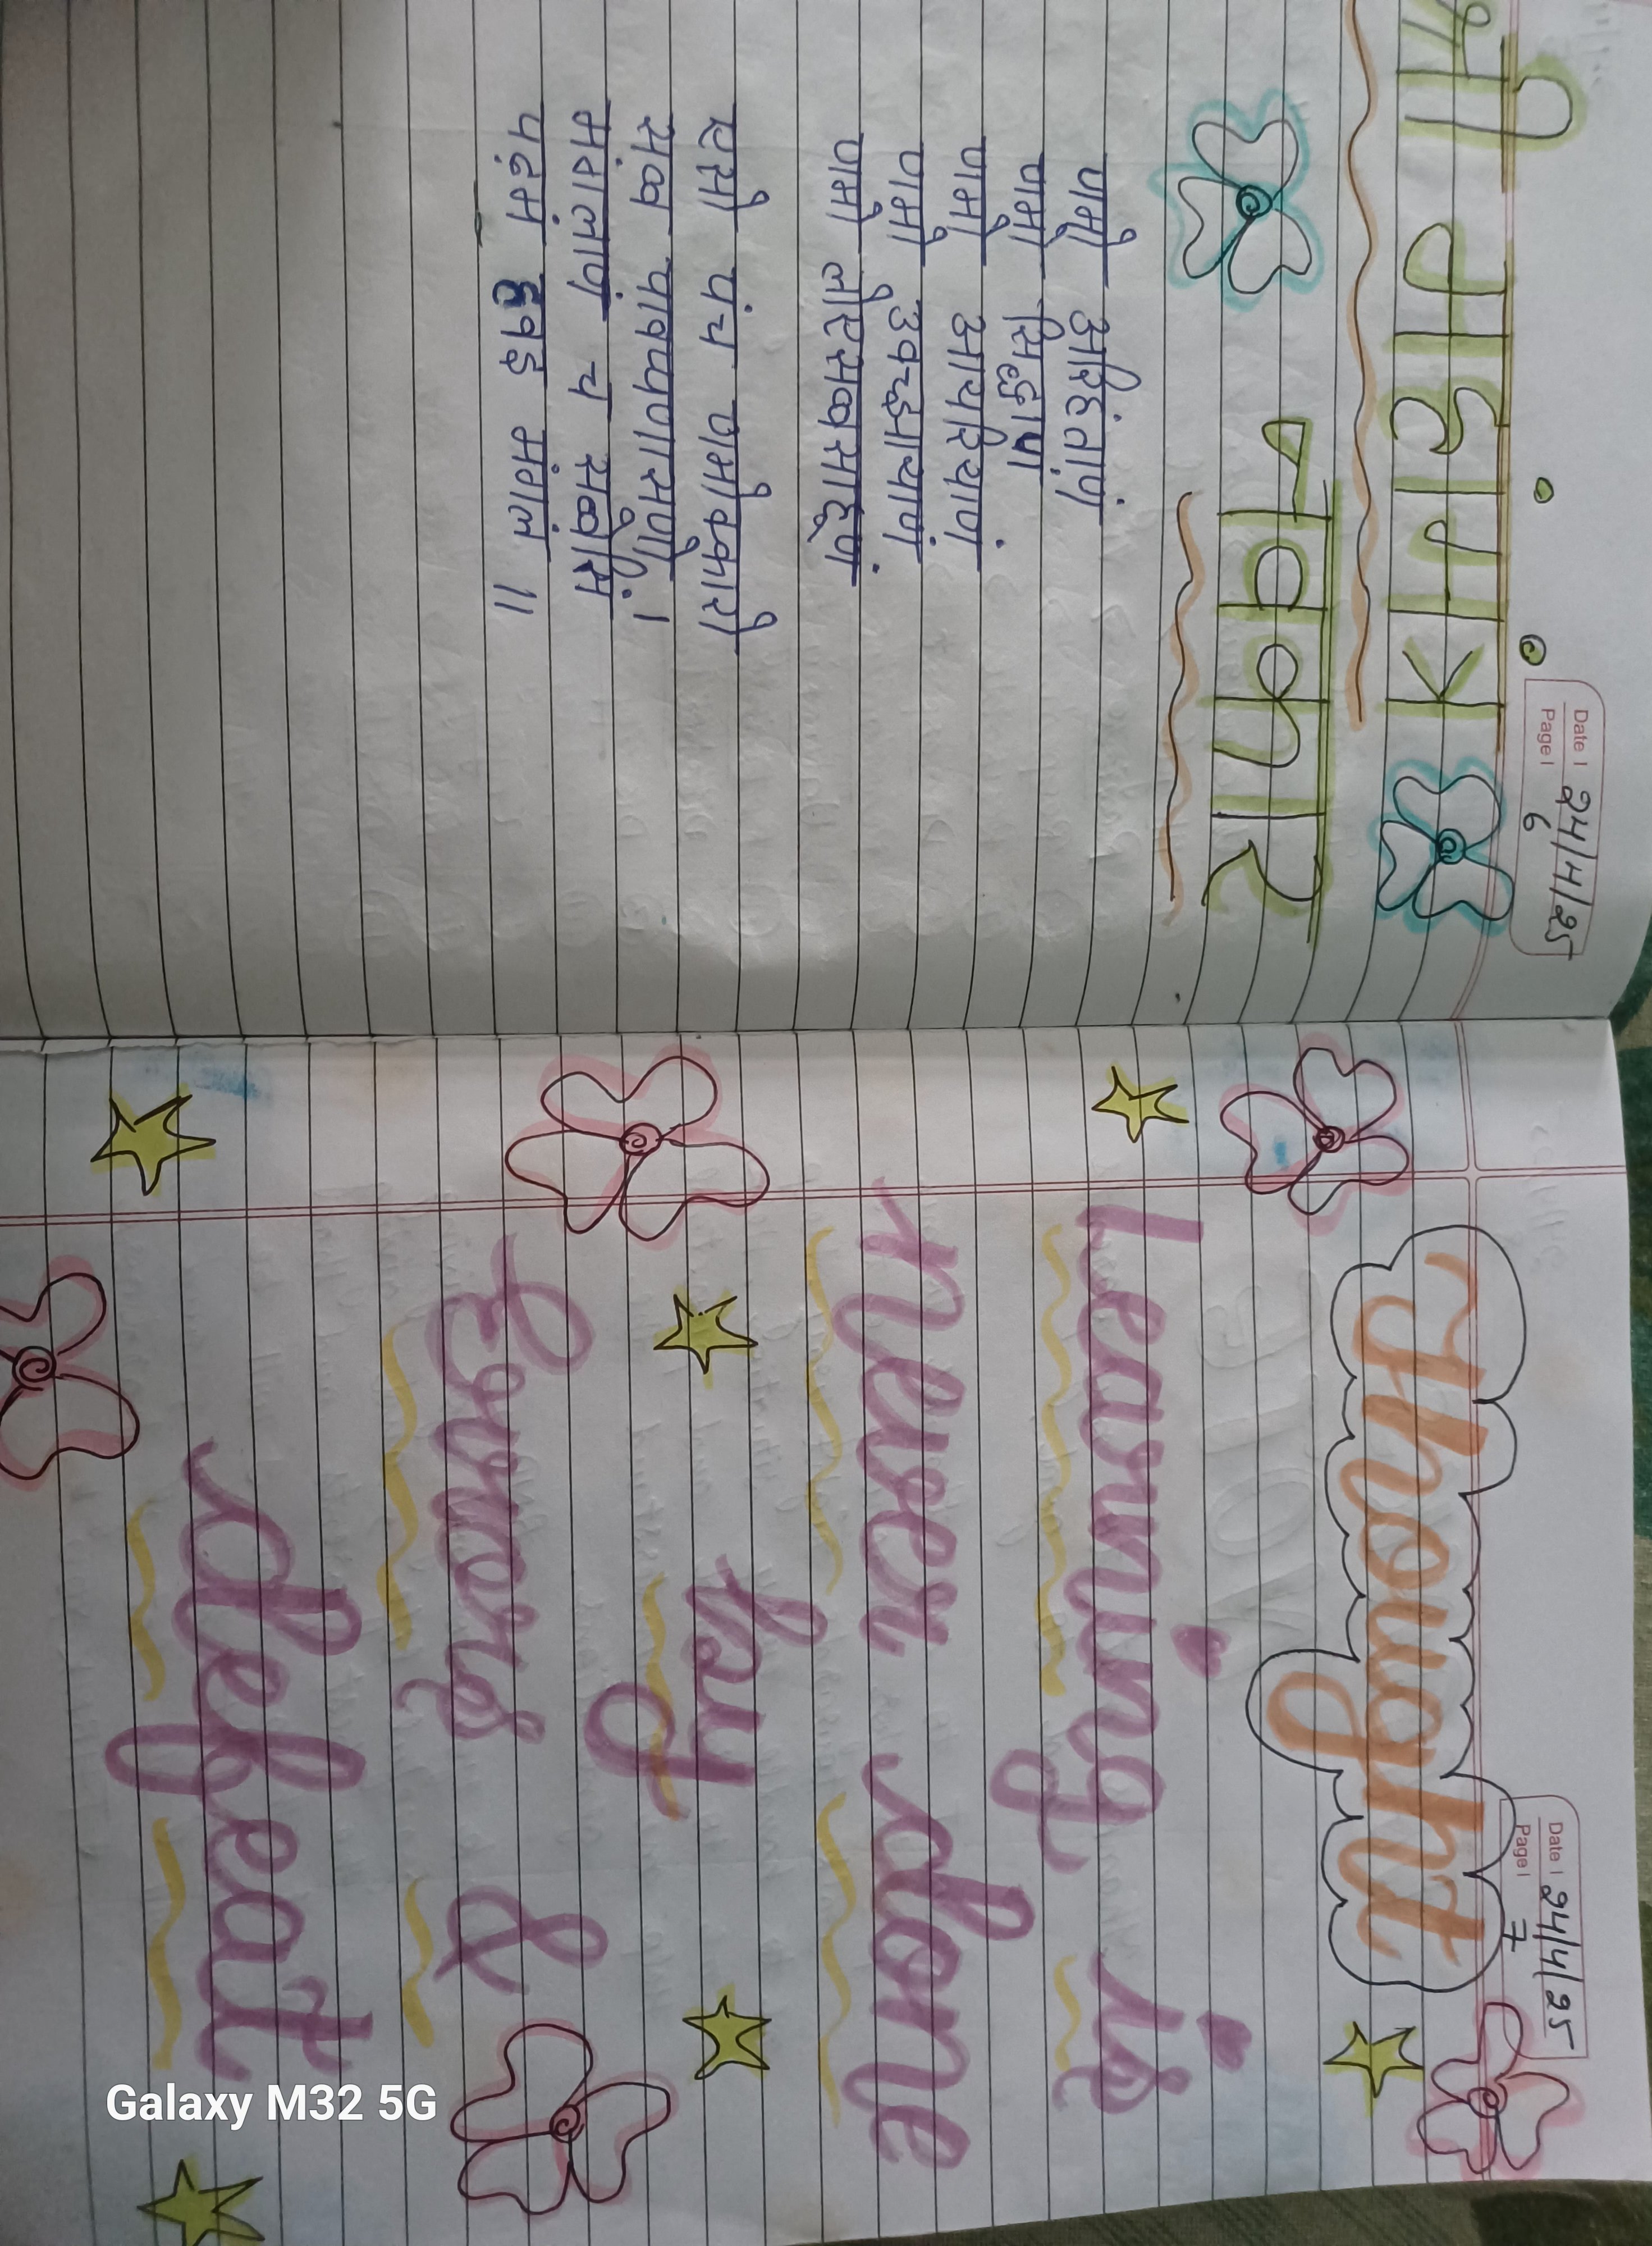 Date 24/4/25
Page 6
श्री महामंत्र
नवकार
णमो अरिहंताणं
णमो सिद्धाण
णमो आयरियाणं
णमो उवज्झायाणं
णमो लोएसव्वसाहूणं
एसो पंच णमोक्कारो
सव्व पावप्पणासणो।
मंगालाणं च सव्वसिं
पढ़मं हवइ मंगलं ॥
Date 24/4/25
Page 7
Thought
Learning is
never done
by
Errors &
defeat
Galaxy M32 5G